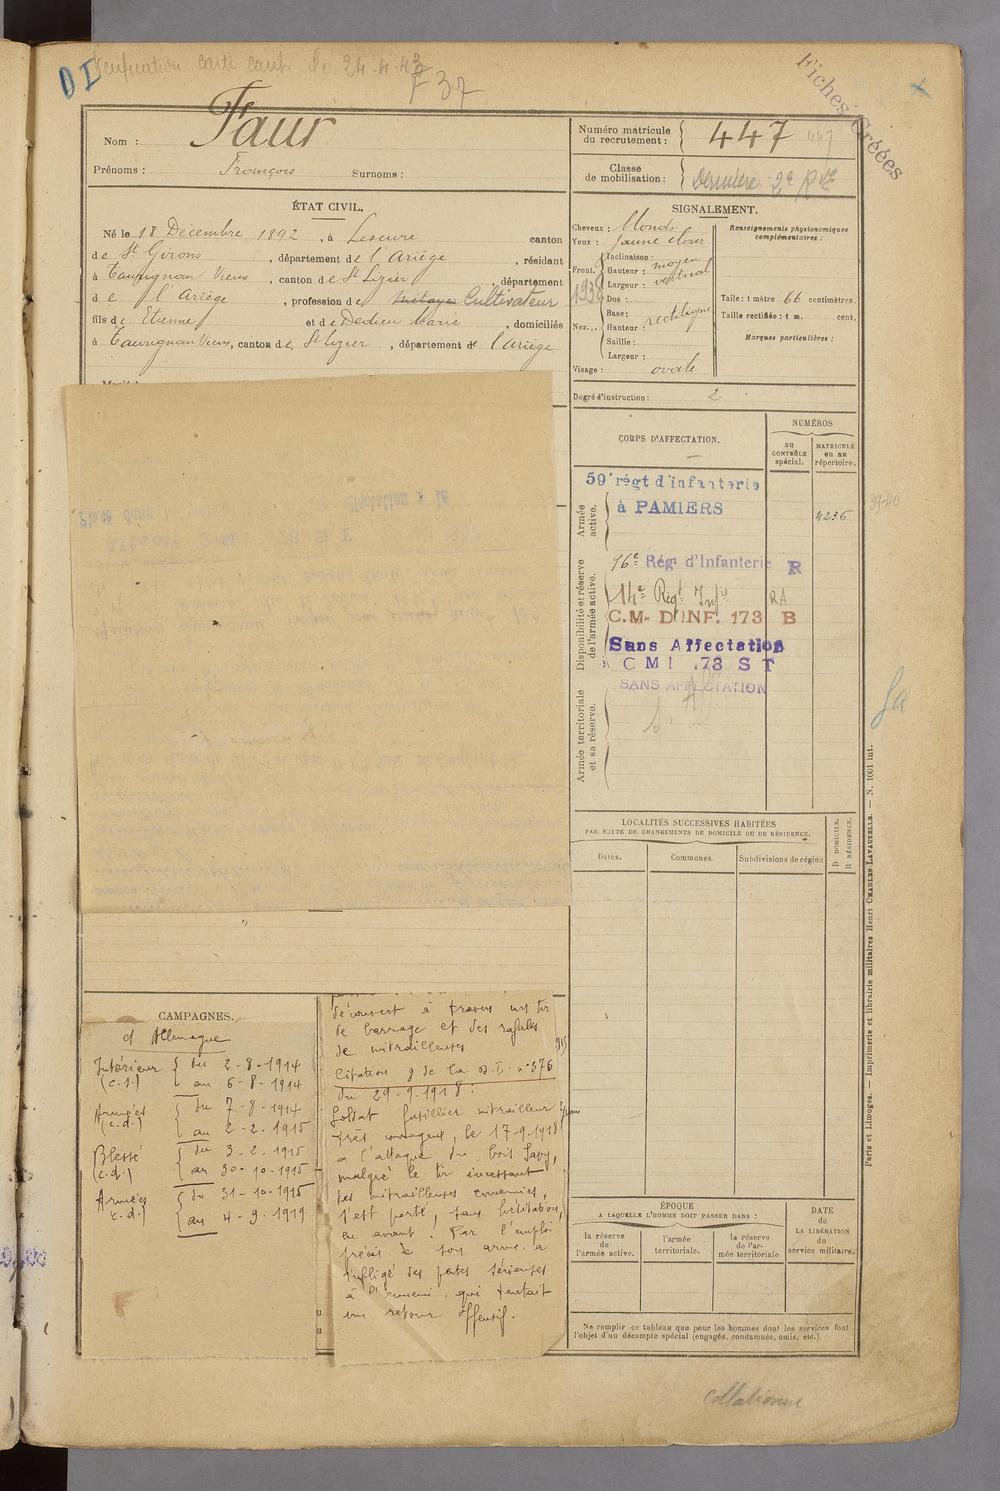 D I
carte de 24.4.43
F 37
Fiches Créées
Nom : Faur
Prénoms : François Surnoms :
Numéro matricule du recrutement : 447 447
Classe de mobilisation : Dernière 2e Rve
ÉTAT CIVIL.
Né le 18 Decembre 1892, à Lescure canton
de St Girons, département de l'Ariège, résidant
à Taurignan Vieux, canton de St Lizier, département
de l'Ariège, profession de métayer Cultivateur
fils de Etienne et de Dedieu Marie, domiciliés
à Taurignan Vieux, canton de St Lizier, département de l'Ariège
SIGNALEMENT.
Cheveux : blonds
Yeux : jaune clair
Front. Inclinaison :
Hauteur : moyen
Largeur : vertical
1938
Nez... Dos :
Base : rectiligne
Hauteur :
Saillie :
Largeur :
Visage : ovale
Renseignements physionomiques complémentaires :
Taille : 1 mètre 66 centimètres.
Taille rectifiée : 1 m. cent.
Marques particulières :
Degré d'instruction : 2
CORPS D'AFFECTATION.
NUMÉROS
au CONTRÔLE spécial.
MATRICULE ou au répertoire.
Armée active.
59e régt d'infanterie
à PAMIERS
4236
39-40
Disponibilité et réserve de l'armée active.
96e Régt d'Infanterie R
14e Régt Infie RA
C.M. D'INF. 173 B
Sans Affectation
C M I 173 S T
SANS AFFECTATION
S. Aff
Armée territoriale et sa réserve.
LOCALITÉS SUCCESSIVES HABITÉES
PAR SUITE DE CHANGEMENTS DE DOMICILE OU DE RÉSIDENCE.
Dates.
Communes.
Subdivisions de région
D DOMICILE.
R RÉSIDENCE.
CAMPAGNES.
d'Allemagne
Intérieur (c.s.) du 2-8-1914
au 6-8-1914
Armées (c.d.) du 7-8-1914
au 2-2-1915
Blessé (c.d.) du 3-2-1915
au 30-10-1915
Armées (c.d.) du 31-10-1915
au 4-9-1919
découvert à travers un tir
de barrage et des rafales
de mitrailleuses
Citation g de la D.I. n° 376
du 29-9-1918 :
Soldat fusillier mitrailleur
très courageux, le 17-9-1918
a l'attaque du bois Savy,
malgré le tir incessant
des mitrailleuses ennemies,
s'est porté, sans hésitation,
en avant. Par l'emploi
précis de son arme a
infligé des pertes sérieuses
à l'ennemi, qui tentait
un retour offensif.
ÉPOQUE
A LAQUELLE L'HOMME DOIT PASSER DANS :
la réserve de l'armée active.
l'armée territoriale.
la réserve de l'armée territoriale
DATE de LA LIBÉRATION du service militaire.
Ne remplir ce tableau que pour les hommes dont les services font
l'objet d'un décompte spécial (engagés, condamnés, omis, etc.).
Paris et Limoges. — Imprimerie et librairie militaires Henri CHARLES-LAVAUZELLE. — N. 1001 int.
Collationné